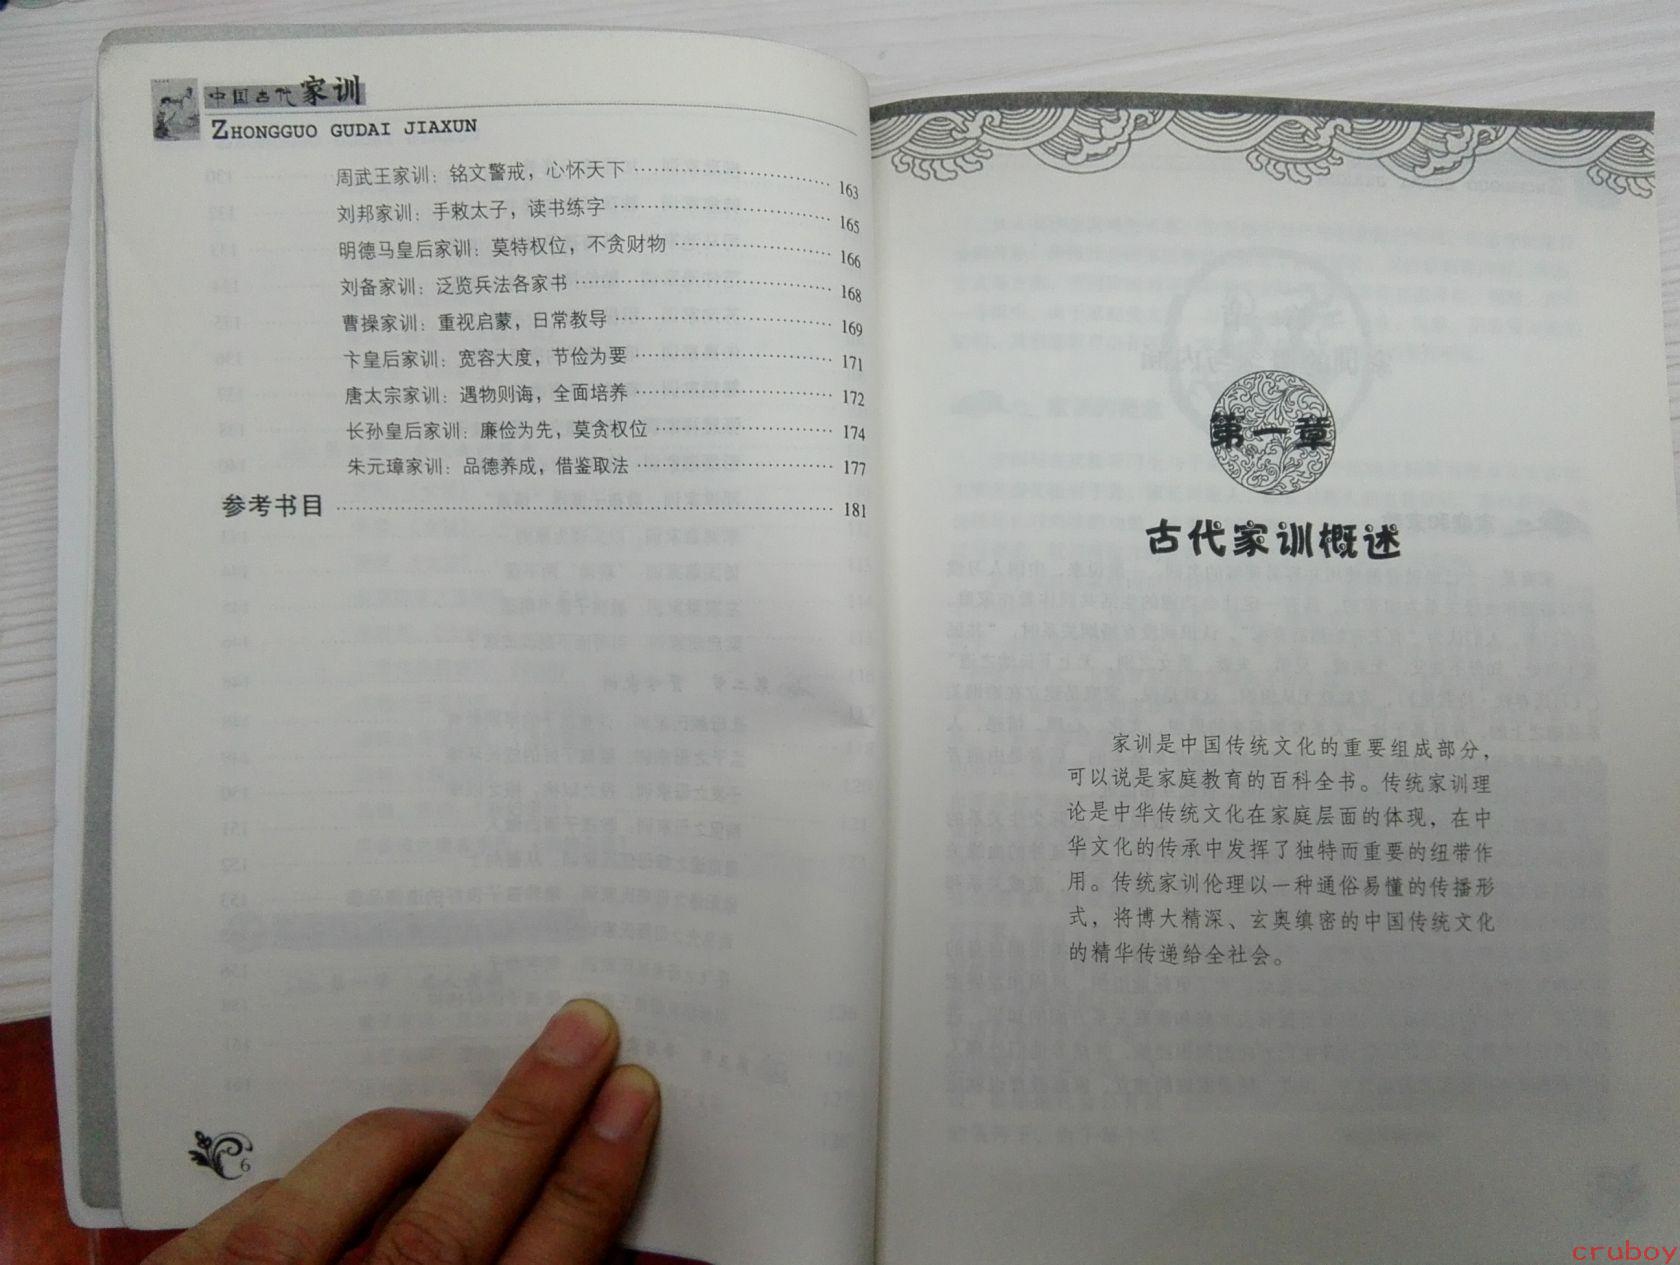 中国古代家训
ZHONGGUO GUDAI JIAXUN
周武王家训：铭文警戒，心怀天下 163
刘邦家训：手敕太子，读书练字 165
明德马皇后家训：莫特权位，不贪财物 166
刘备家训：泛览兵法各家书 168
曹操家训：重视启蒙，日常教导 169
卞皇后家训：宽容大度，节俭为要 171
唐太宗家训：遇物则诲，全面培养 172
长孙皇后家训：廉俭为先，莫贪权位 174
朱元璋家训：品德养成，借鉴取法 177
参考书目 181
6
第一章
古代家训概述
家训是中国传统文化的重要组成部分，
可以说是家庭教育的百科全书。传统家训理
论是中华传统文化在家庭层面的体现，在中
华文化的传承中发挥了独特而重要的纽带作
用。传统家训伦理以一种通俗易懂的传播形
式，将博大精深、玄奥缜密的中国传统文化
的精华传递给全社会。
cruboy